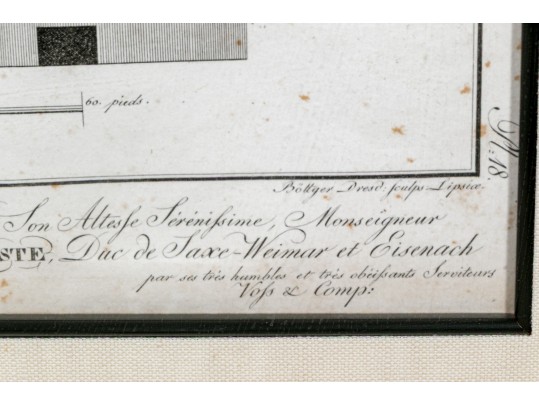 60. pieds.
Pl: 18.
Böttger Dresd. sculps Lipsiæ.
Son Altesse Sérénissime, Monseigneur
STE, Duc de Saxe-Weimar et Eisenach
par ses très humbles et très obéissants Serviteurs
Voss & Comp: